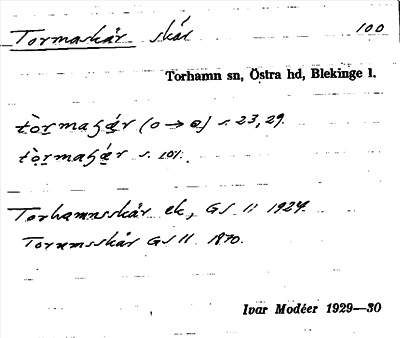 Tormaskär skär 100
Torhamn sn, Östra hd, Blekinge l.
tòrmaʂǽr (o → ɵ) s. 23, 29.
tòrmaʂǽr s. 101.
Torhamnsskär ek, GS 11 1924.
Torumsskär GS 11 1870.
Ivar Modéer 1929—30